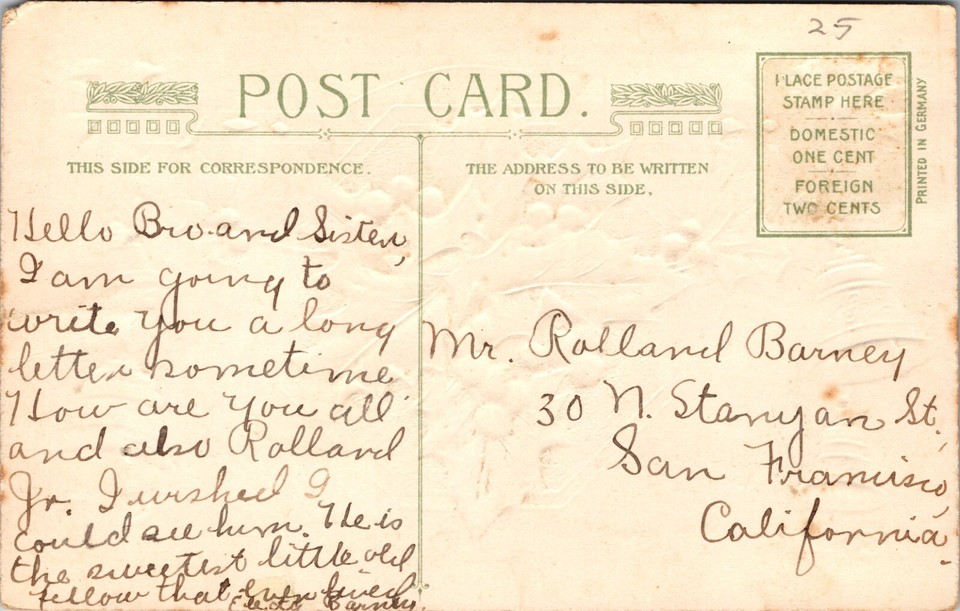 25
POST CARD.
THIS SIDE FOR CORRESPONDENCE.
THE ADDRESS TO BE WRITTEN
ON THIS SIDE.
PLACE POSTAGE
STAMP HERE
DOMESTIC
ONE CENT
FOREIGN
TWO CENTS
PRINTED IN GERMANY
Hello Bro. and Sister,
I am going to
write you a long
letter sometime
How are you all
and also Rolland
Jr. I wished I
could see him. He is
the sweetest little old
fellow that ever lived
Barney.
Mr. Rolland Barney
30 N. Stanyan St.,
San Francisco,
California.